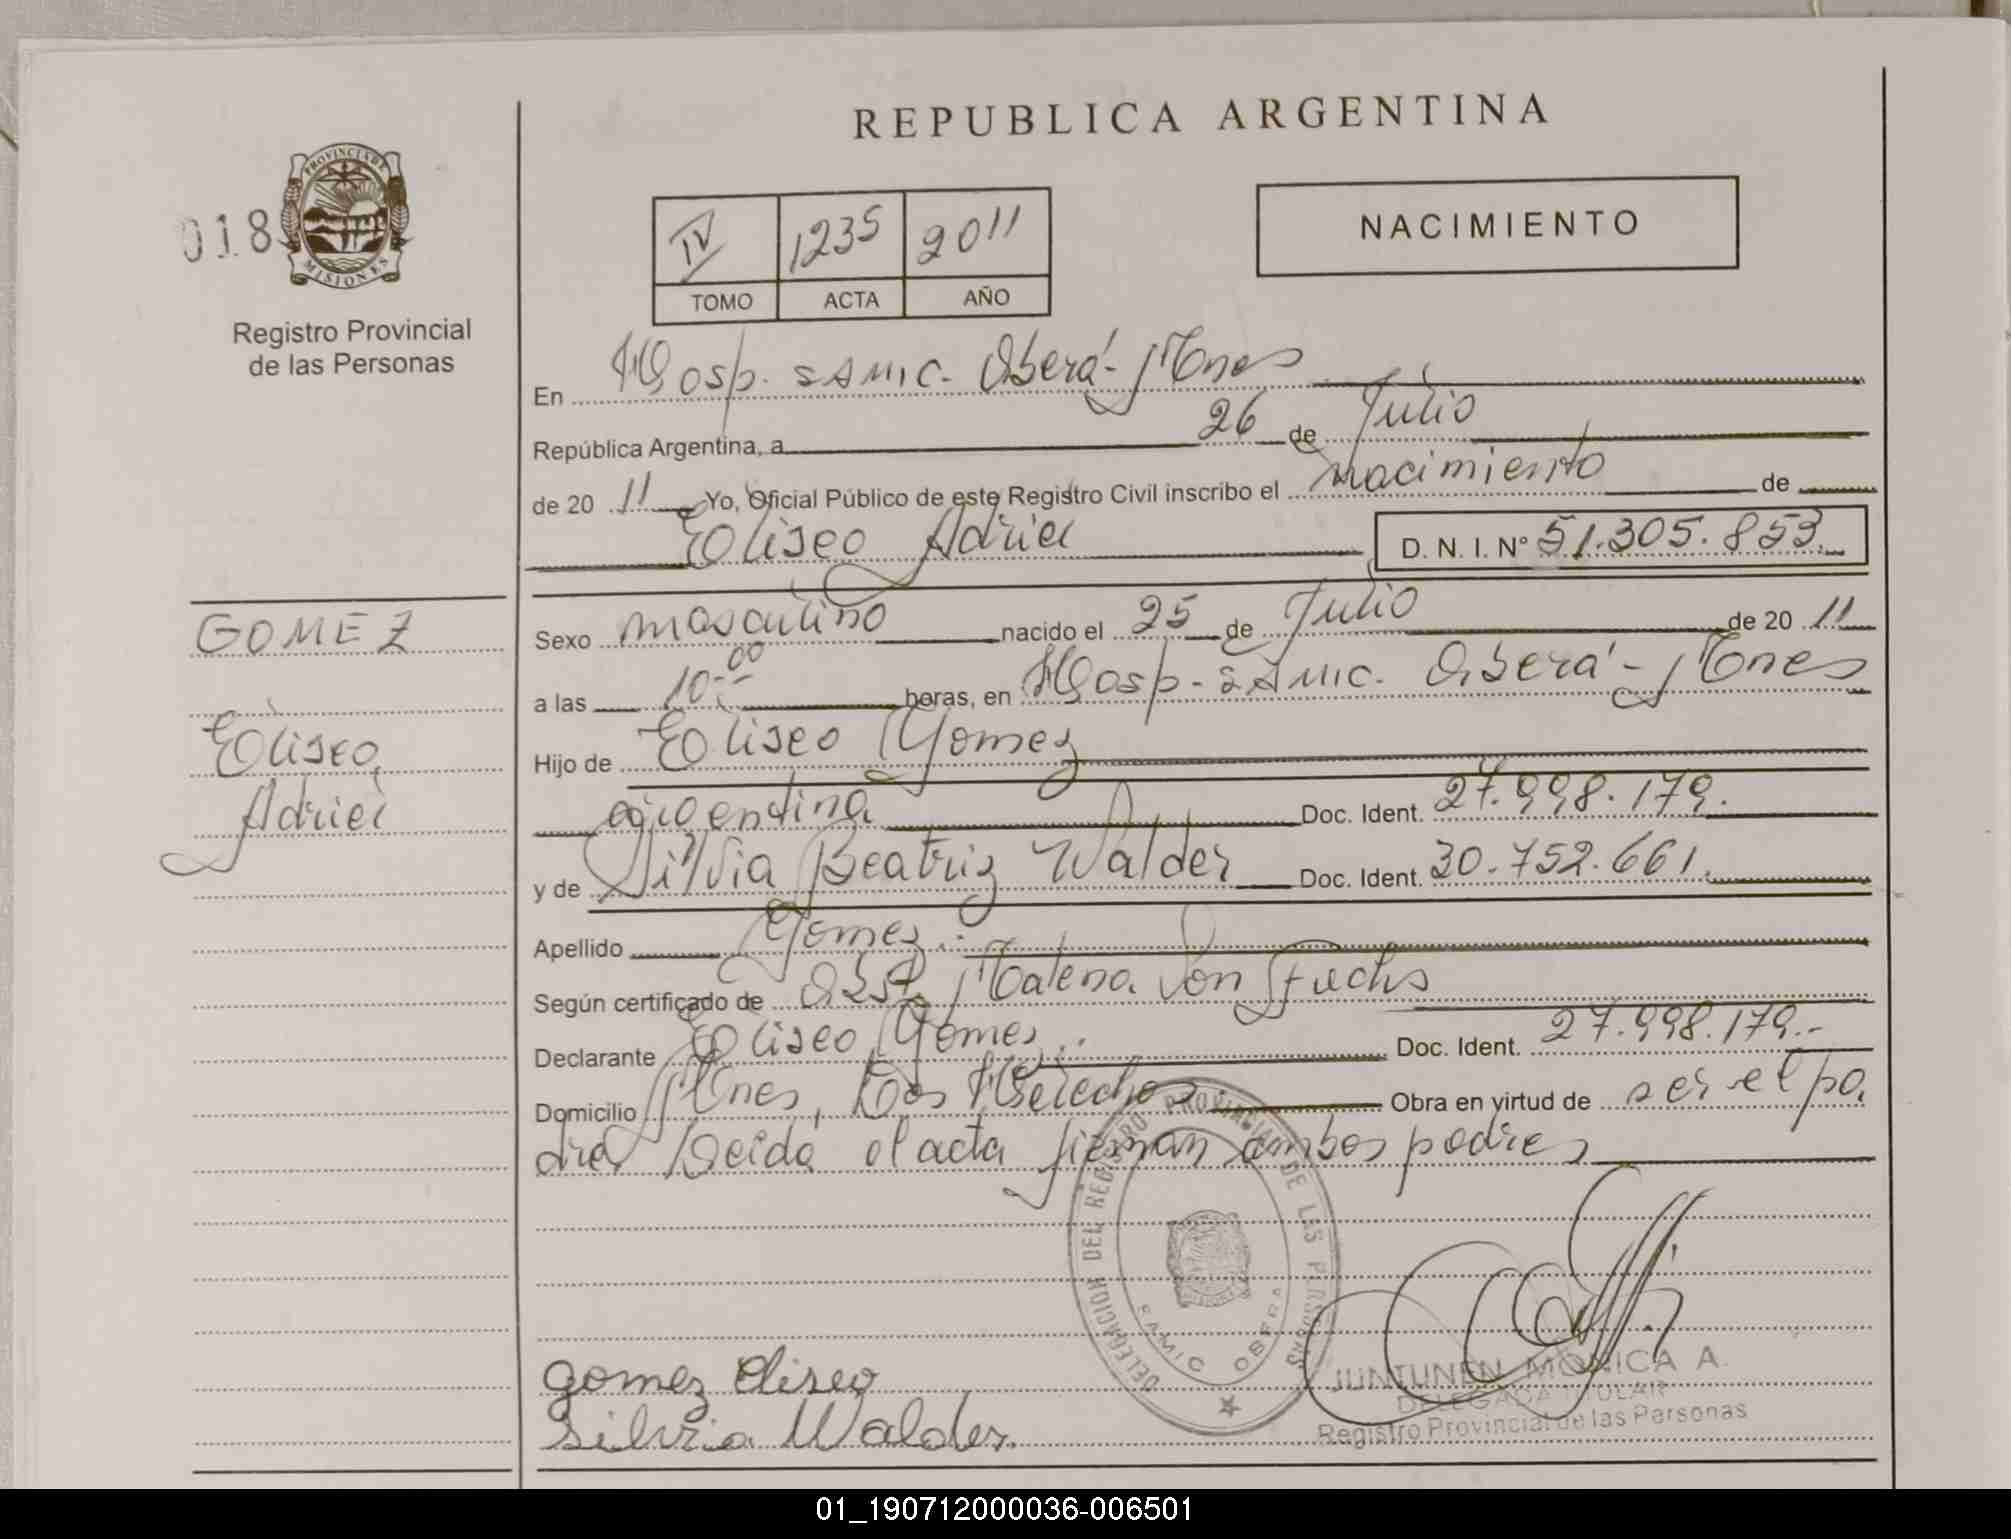 REPUBLICA ARGENTINA
PROVINCIA DE
MISIONES
018
Registro Provincial
de las Personas
IV 1235 2011
TOMO ACTA AÑO
NACIMIENTO
En Hosp. SAMIC. Oberá - Mnes
República Argentina, a 26 de Julio
de 20 11 Yo, Oficial Público de este Registro Civil inscribo el nacimiento de
Eliseo Adriel
D. N. I. Nº 51.305.853.
GOMEZ
Eliseo
Adriel
Sexo masculino nacido el 25 de Julio de 20 11
a las 10:00 horas, en Hosp - SAMIC. Oberá - Mnes
Hijo de Eliseo Gomez
argentina Doc. Ident. 27.998.179.
y de Silvia Beatriz Walder Doc. Ident. 30.752.661.
Apellido Gomez.
Según certificado de Obst. Malena Von Fuchs
Declarante Eliseo Gomez. Doc. Ident. 27.998.179.-
Domicilio Mnes, Dos Obra en virtud de ser el pa
dre Leida el acta firman ambos padres
DELEGACION DEL REGISTRO PROVINCIAL DE LAS PERSONAS
SAMIC OBERA
gomez Eliseo
Silvia Walder.
JUNTUNEN MONICA A.
DELEGADA TITULAR
Registro Provincial de las Personas
01_190712000036-006501